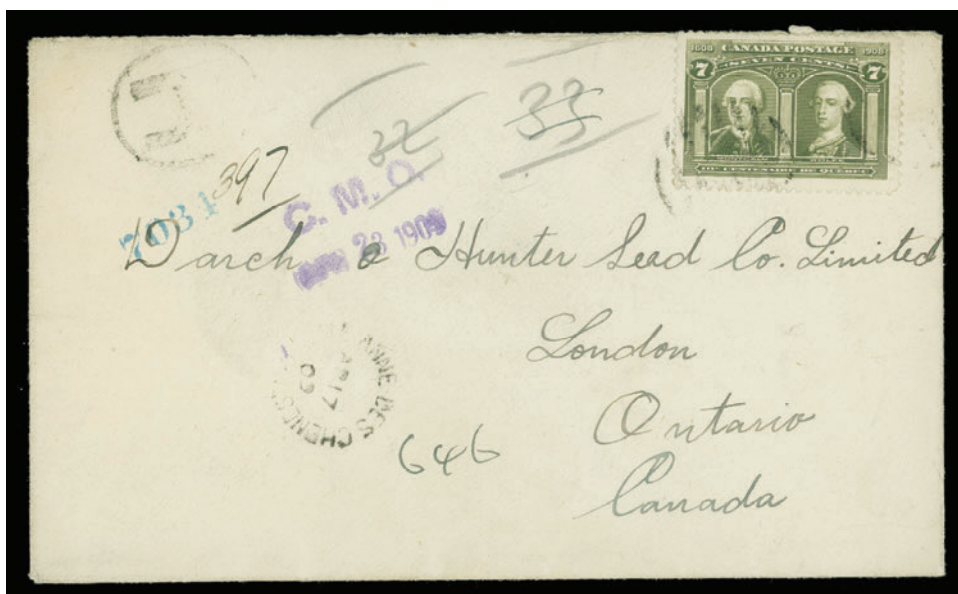 1608 CANADA POSTAGE 1908
SEVEN CENTS
7 7
MONTCALM WOLFE
IIIE CENTENAIRE DE QUEBEC
R
33
32
397
7034
C. M. O.
23 1909
Darch & Hunter Seed Co. Limited
London
Ontario
Canada
ANNE DES CHENES
17
09
646